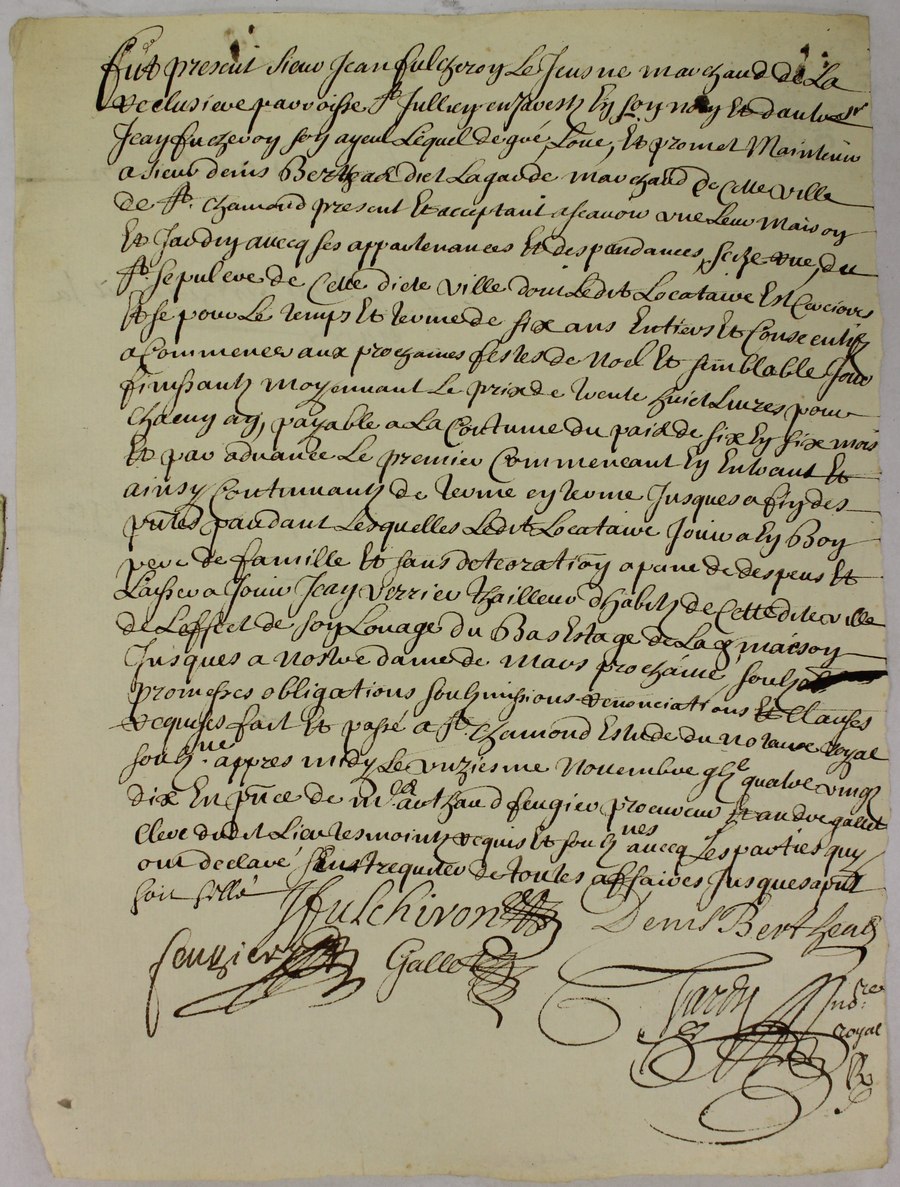 fut present sieur Jean fulcheron Le Jeusne marchand de La
reclusiere parroisse St Jullien en Javestz En son nom Et d'autre sr
Jean fulcheron son ayeul Lequel de gré, Loue, Et promet Maintenir
a sieur denis Bertheas dict Lagarde marchand de Cette ville
de St. chamond present Et acceptant ascavoir une Leur Maison
Et Jardin avecq ses appartenances Et despendances, seize rue du
St. sepulcre de Cette dicte ville dont Ledit Locataire Est Cerciore
Et se pour Le temps Et terme de six ans Entiers Et Consecutifz
a Commencer aux prochaines festes de Noel Et semblable Jour
finissantz moyennant Le prix de trente huict Livres pour
chacun an, payable a La Coutume du païs de six En six mois
Et par advance Le premier Commencant En Entrant Et
ainsy Continuantz de terme en terme Jusques a fin des
pntes pandant Lesquelles Ledit Locataire Jouira En Bon
pere de famille Et sans deteoration a pene de despens Et
Laisser a Jouir Jean verrier thailleur d'habitz de Cette dite ville
de L'effect de son Louage du Bas Estage de La d. maison
Jusques a nostre dame de mars prochaine, soubz
promesses obligations soubzmissions renonciations Et Clauses
requises fait Et passé a St. chamond Estude du notaire royal
soubz.ne appres midy Le unziesme Novembre gbjc quatre vingtz
dix En pnce de mre arthaud feugier procureur Et andre gallot
clerc dudit Lieu tesmointz requis Et soubznes avecq Les parties quy
ont declaré s'entrequiter de toutes affaires Jusques a pnt
soit sellé
JFulchiron Denis Bertheas
feugier Gallot
Jardy nore
royal
R